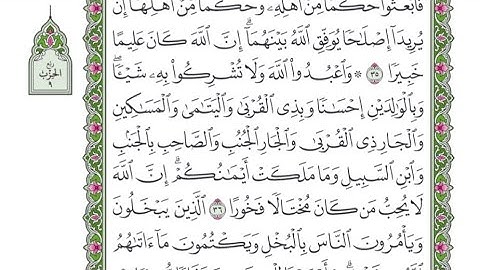 فَٱبۡعَثُواْ حَكَمٗا مِّنۡ أَهۡلِهِۦ وَحَكَمٗا مِّنۡ أَهۡلِهَآ إِن
يُرِيدَآ إِصۡلَٰحٗا يُوَفِّقِ ٱللَّهُ بَيۡنَهُمَآۗ إِنَّ ٱللَّهَ كَانَ عَلِيمًا
خَبِيرٗا ٣٥ ۞ وَٱعۡبُدُواْ ٱللَّهَ وَلَا تُشۡرِكُواْ بِهِۦ شَيۡـٔٗاۖ
وَبِٱلۡوَٰلِدَيۡنِ إِحۡسَٰنٗا وَبِذِي ٱلۡقُرۡبَىٰ وَٱلۡيَتَٰمَىٰ وَٱلۡمَسَٰكِينِ
وَٱلۡجَارِ ذِي ٱلۡقُرۡبَىٰ وَٱلۡجَارِ ٱلۡجُنُبِ وَٱلصَّاحِبِ بِٱلۡجَنۢبِ
وَٱبۡنِ ٱلسَّبِيلِ وَمَا مَلَكَتۡ أَيۡمَٰنُكُمۡۗ إِنَّ ٱللَّهَ
لَا يُحِبُّ مَن كَانَ مُخۡتَالٗا فَخُورًا ٣٦ ٱلَّذِينَ يَبۡخَلُونَ
وَيَأۡمُرُونَ ٱلنَّاسَ بِٱلۡبُخۡلِ وَيَكۡتُمُونَ مَآ ءَاتَىٰهُمُ
ربع
الحزب
٩